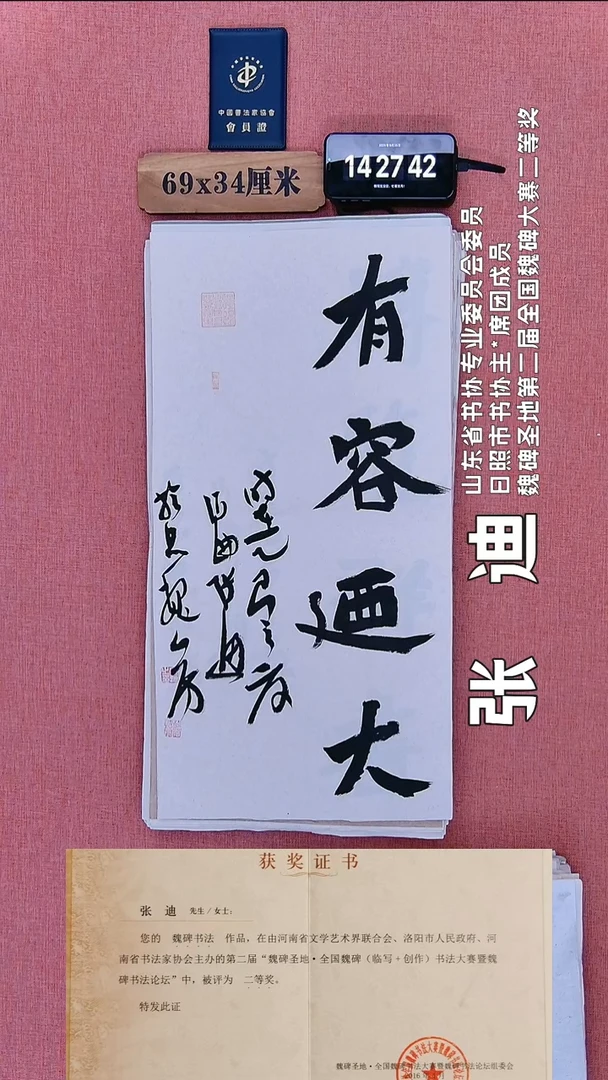 中國書法家協會
會員證
69x34厘米
14 27 42
有容迺大
山东省书协专业委员会委员
日照市书协主*席团成员
魏碑圣地第二届全国魏碑大赛二等奖
张 迪
获奖证书
张 迪 先生/女士:
您的 魏碑书法 作品，在由河南省文学艺术界联合会、洛阳市人民政府、河
南省书法家协会主办的第二届“魏碑圣地·全国魏碑（临写+创作）书法大赛暨魏
碑书法论坛”中，被评为 二等奖。
特发此证
魏碑圣地·全国魏碑书法大赛暨魏碑书法论坛组委会